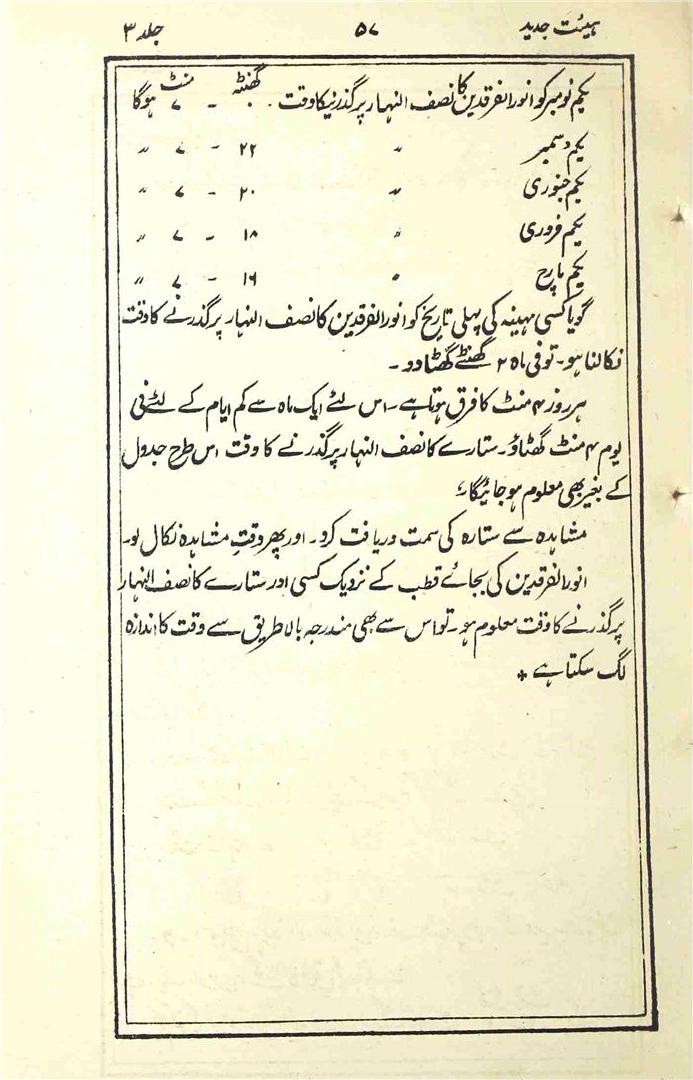 ہیئت جدید ۵۷ جلد ۳
یکم نومبر کو انور الفرقدین کا نصف النہار پر گذرنیکا وقت ۰ گھنٹہ - ۷ منٹ ہوگا
یکم دسمبر 〃 ۲۲ - ۷ 〃
یکم جنوری 〃 ۲۰ - ۷ 〃
یکم فروری 〃 ۱۸ - ۷ 〃
یکم مارچ 〃 ۱۶ - ۷ 〃
گویا کسی مہینہ کی پہلی تاریخ کو انور الفرقدین کا نصف النہار پر گذرنے کا وقت
نکالنا ہو۔ تو فی ماہ ۲ گھنٹے گھٹا دو۔
ہر روز ۴ منٹ کا فرق ہوتا ہے۔ اس لئے ایک ماہ سے کم ایام کے لئے فی
یوم ۴ منٹ گھٹاؤ۔ ستارے کا نصف النہار پر گذرنے کا وقت اس طرح جدول
کے بغیر بھی معلوم ہو جائیگا۔
مشاہدہ سے ستارہ کی سمت دریافت کرو۔ اور پھر وقتِ مشاہدہ نکال لو۔
انور الفرقدین کی بجائے قطب کے نزدیک کسی اور ستارے کا نصف النہار
پر گذرنے کا وقت معلوم ہو۔ تو اس سے بھی مندرجہ بالا طریق سے وقت کا اندازہ
لگ سکتا ہے *